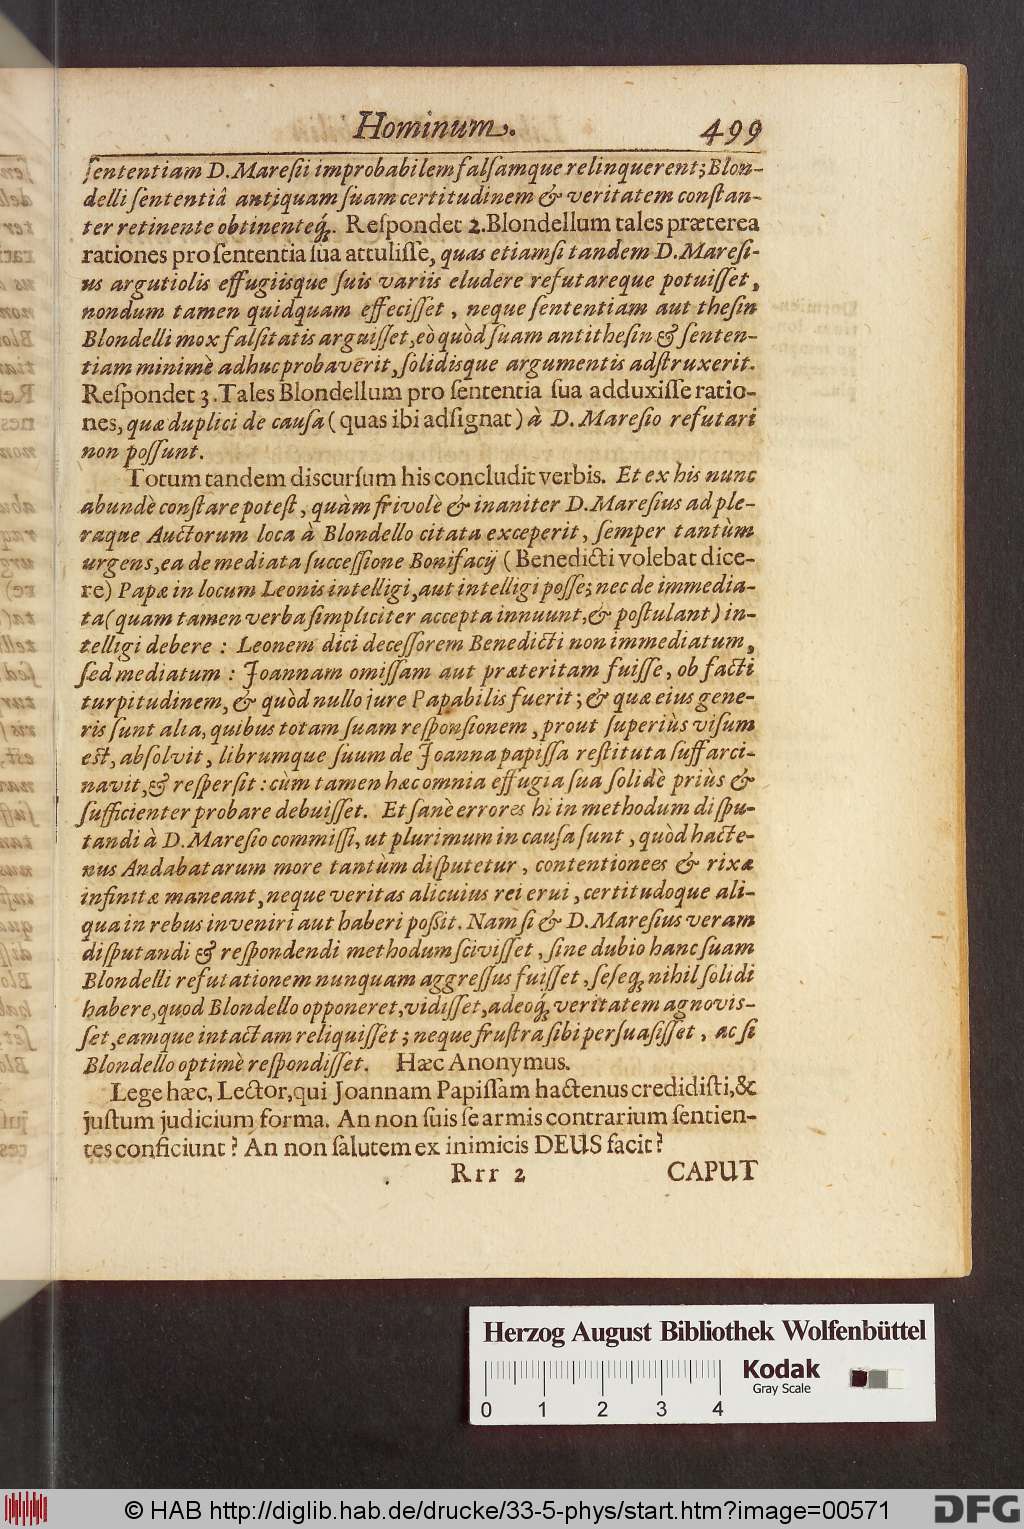 Hominum. 499
ſententiam D. Mareſii improbabilem falſamque relinquerent; Blon-
delli ſententiâ antiquam ſuam certitudinem & veritatem conſtan-
ter retinente obtinenteq́;. Reſpondet 2. Blondellum tales præterea
rationes pro ſententia ſua attuliſſe, quas etiamſi tandem D. Mareſi-
us argutiolis effugiisque ſuis variis eludere refutareque potuiſſet,
nondum tamen quidquam effeciſſet, neque ſententiam aut theſin
Blondelli mox falſitatis arguiſſet, eò quòd ſuam antitheſin & ſenten-
tiam minimè adhuc probaverit, ſolidisque argumentis adſtruxerit.
Reſpondet 3. Tales Blondellum pro ſententia ſua adduxiſſe ratio-
nes, quæ duplici de cauſa (quas ibi adſignat) à D. Mareſio refutari
non poſſunt.
Totum tandem discurſum his concludit verbis. Et ex his nunc
abundè conſtare poteſt, quàm frivolè & inaniter D. Mareſius ad ple-
raque Auctorum loca à Blondello citata exceperit, ſemper tantùm
urgens, ea de mediata ſucceſſione Bonifacij (Benedicti volebat dice-
re) Papæ in locum Leonis intelligi, aut intelligi poſſe; nec de immedia-
ta (quam tamen verba ſimpliciter accepta innuunt, & poſtulant) in-
telligi debere : Leonem dici deceſſorem Benedicti non immediatum,
ſed mediatum : Joannam omiſſam aut præteritam fuiſſe, ob facti
turpitudinem, & quòd nullo jure Papabilis fuerit; & quæ eius gene-
ris ſunt alia, quibus totam ſuam reſponſionem, prout ſuperiùs viſum
eſt, abſolvit, librumque ſuum de Joanna papiſſa reſtituta ſuffarci-
navit, & reſperſit : cùm tamen hæc omnia effugia ſua ſolidè priùs &
ſufficienter probare debuiſſet. Et ſanè errores hi in methodum diſpu-
tandi à D. Mareſio commiſſi, ut plurimum in cauſa ſunt, quòd hacte-
nus Andabatarum more tantùm diſputetur, contentionees & rixæ
infinitæ maneant, neque veritas alicuius rei erui, certitudoque ali-
qua in rebus inveniri aut haberi poſſit. Nam ſi & D. Mareſius veram
diſputandi & reſpondendi methodum ſciviſſet, ſine dubio hanc ſuam
Blondelli refutationem nunquam aggreſſus fuiſſet, ſeſeq́; nihil ſolidi
habere, quod Blondello opponeret, vidiſſet, adeoq́; veritatem agnoviſ-
ſet, eamque intactam reliquiſſet; neque fruſtra ſibi perſuaſiſſet, ac ſi
Blondello optimè reſpondiſſet. Hæc Anonymus.
Lege hæc, Lector, qui Joannam Papiſſam hactenus credidiſti, &
juſtum judicium forma. An non ſuis ſe armis contrarium ſentien-
tes conficiunt? An non ſalutem ex inimicis DEUS facit?
Rrr 2 CAPUT
Herzog August Bibliothek Wolfenbüttel
Kodak
Gray Scale
0 1 2 3 4
© HAB http://diglib.hab.de/drucke/33-5-phys/start.htm?image=00571
DFG